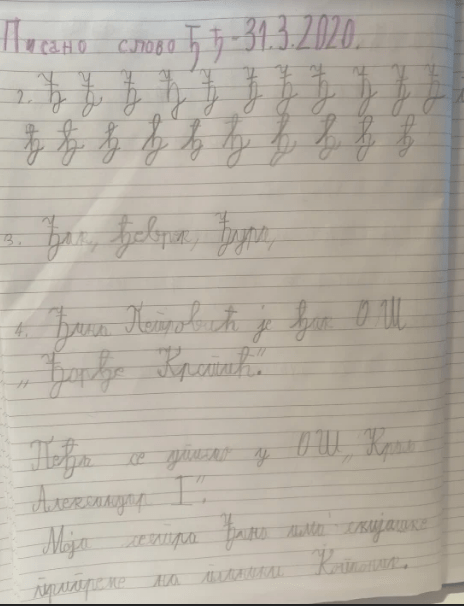 Писано слово Ђ ђ - 31.3.2020.
2. Ђ Ђ Ђ Ђ Ђ Ђ Ђ Ђ Ђ Ђ Ђ
ђ ђ ђ ђ ђ ђ ђ ђ ђ ђ
3. Ђак, ђеврек, Ђура,
4. Ђина Петровић је ђак ОШ
„Ђорђе Крстић".
Пеђа се уписао у ОШ „Краљ
Александар I".
Моја сестра Ђина има скијашке
припреме на планини Копаоник.